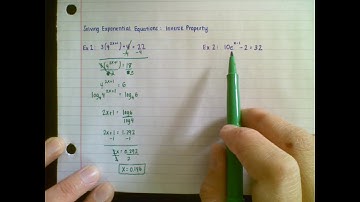 Solving Exponential Equations: Inverse Property
Ex 1: 3(4^(2x+1)) + 4 = 22
-4 -4
3(4^(2x+1)) = 18
3 3
4^(2x+1) = 6
log₄4^(2x+1) = log₄6
2x+1 = log6/log4
2x+1 = 1.292
-1 -1
2x = 0.292
2 2
x = 0.146
Ex 2: 10e^
- 2 = 32